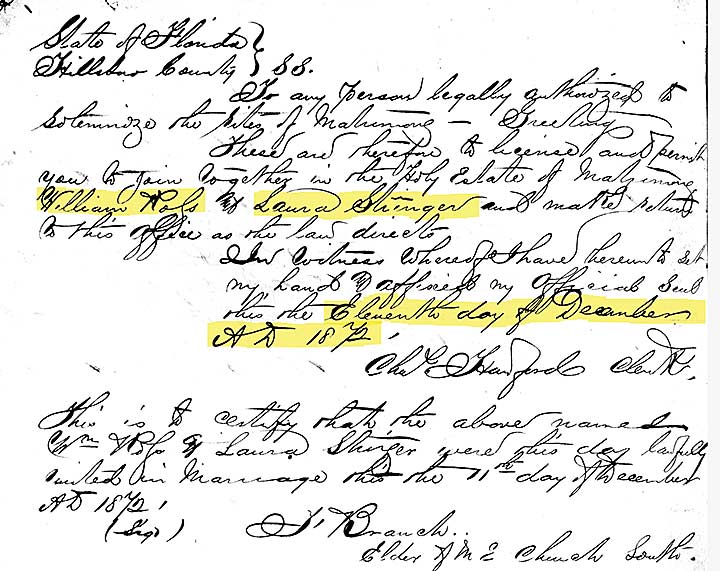 State of Florida
Hillsboro County } SS.
To any person legally authorized to
solemnize the rites of Matrimony — Greeting
These are therefore to license and permit
you to join together in the Holy Estate of Matrimony
William Ross & Laura Stringer and make return
to this office as the law directs
In Witness Whereof I have hereunto set
my hand & affixed my official Seal
this the Eleventh day of December
AD 1872,
Chs E Harford Clerk,
This is to certify that the above named
Wm Ross & Laura Stringer were this day lawfully
united in Marriage this the 11th day of December
AD 1872,
Branch.
Elder of M E Church South.